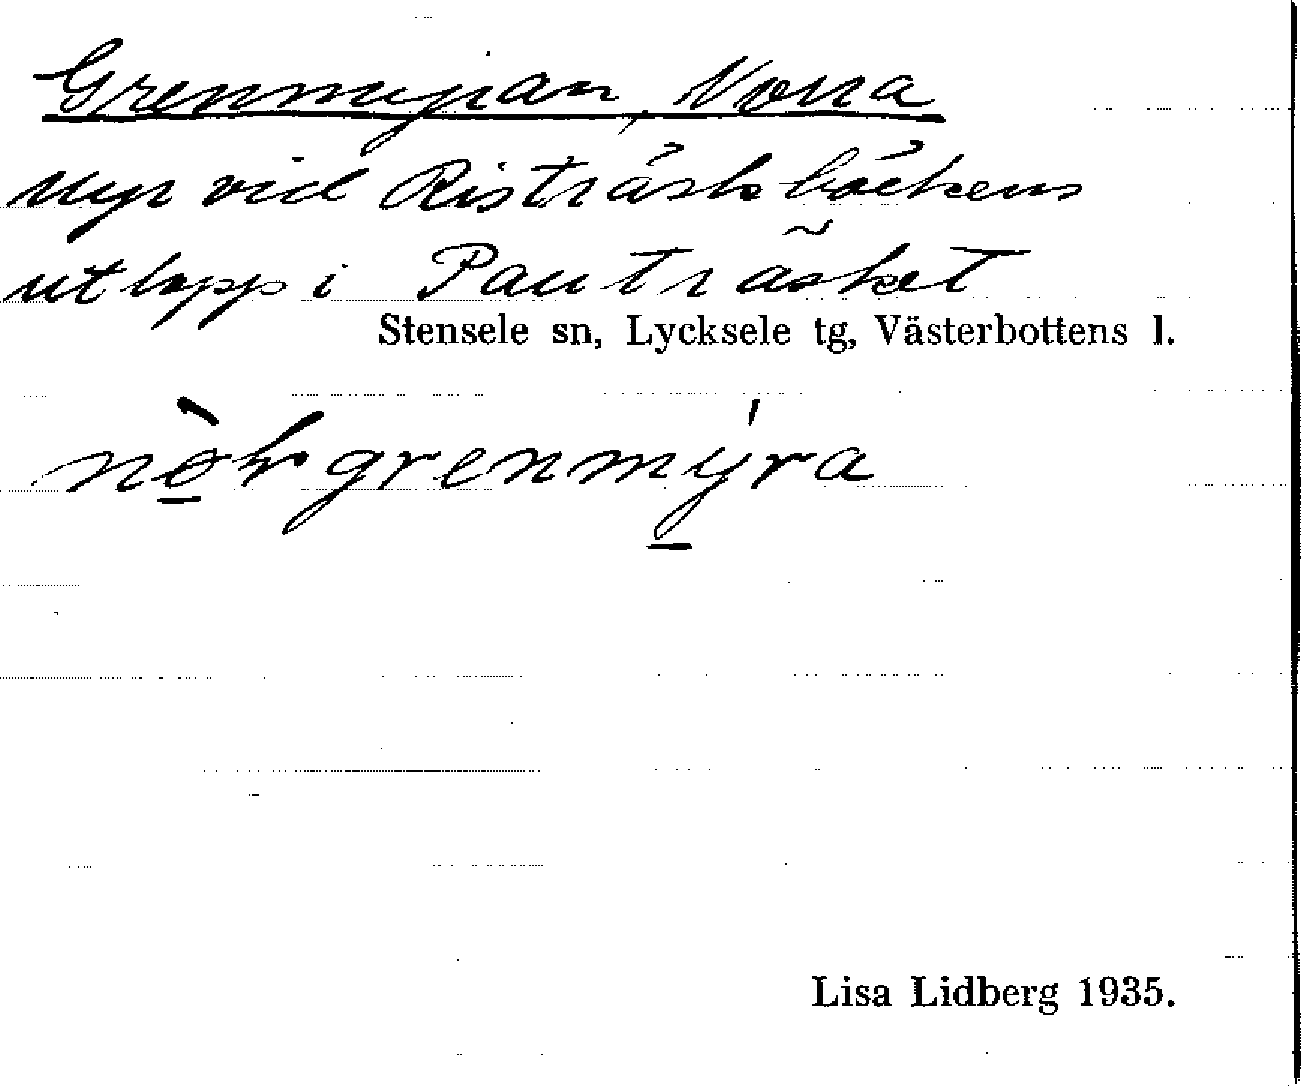 Grenmyran, Norra
Myr vid Risträskbäckens
utlopp i Pauträsket
Stensele sn, Lycksele tg, Västerbottens l.
nò̱rgrenmý̱ra
Lisa Lidberg 1935.